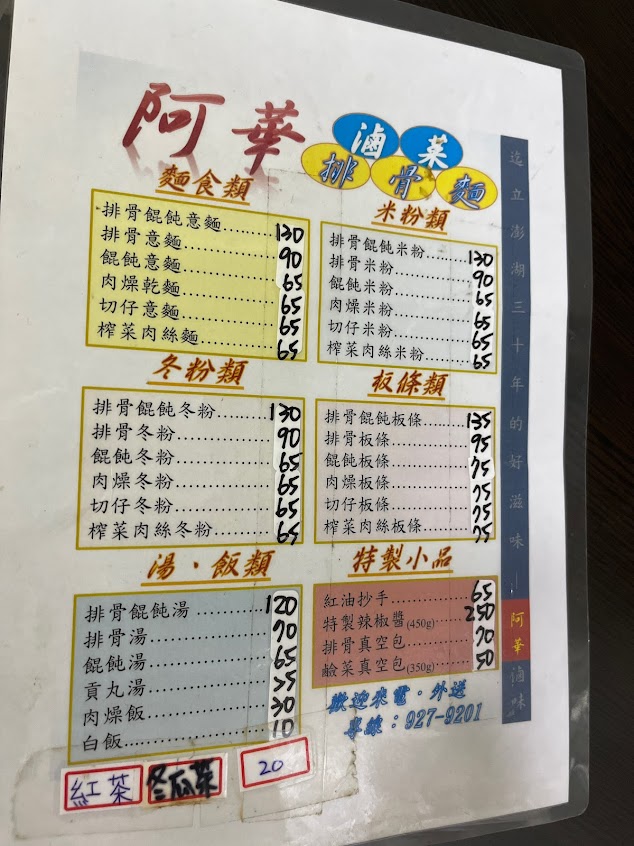 阿華
滷菜
排骨麵
麵食類
排骨餛飩意麵 130
排骨意麵 90
餛飩意麵 65
肉燥乾麵 65
切仔意麵 65
榨菜肉絲麵 65
米粉類
排骨餛飩米粉 130
排骨米粉 90
餛飩米粉 65
肉燥米粉 65
切仔米粉 65
榨菜肉絲米粉 65
冬粉類
排骨餛飩冬粉 130
排骨冬粉 90
餛飩冬粉 65
肉燥冬粉 65
切仔冬粉 65
榨菜肉絲冬粉 65
板條類
排骨餛飩板條 135
排骨板條 95
餛飩板條 75
肉燥板條 75
切仔板條 75
榨菜肉絲板條 75
湯·飯類
排骨餛飩湯 120
排骨湯 70
餛飩湯 65
貢丸湯 35
肉燥飯 30
白飯 10
特製小品
紅油抄手 65
特製辣椒醬(450g) 250
排骨真空包 70
鹼菜真空包(350g) 50
歡迎來電·外送
專線：927-9201
紅茶 冬瓜茶 20
迄立澎湖三十年的好滋味—阿華滷味